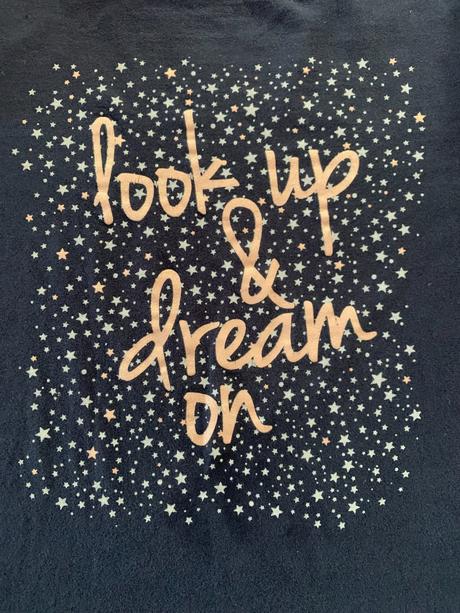 look up
&
dream
on